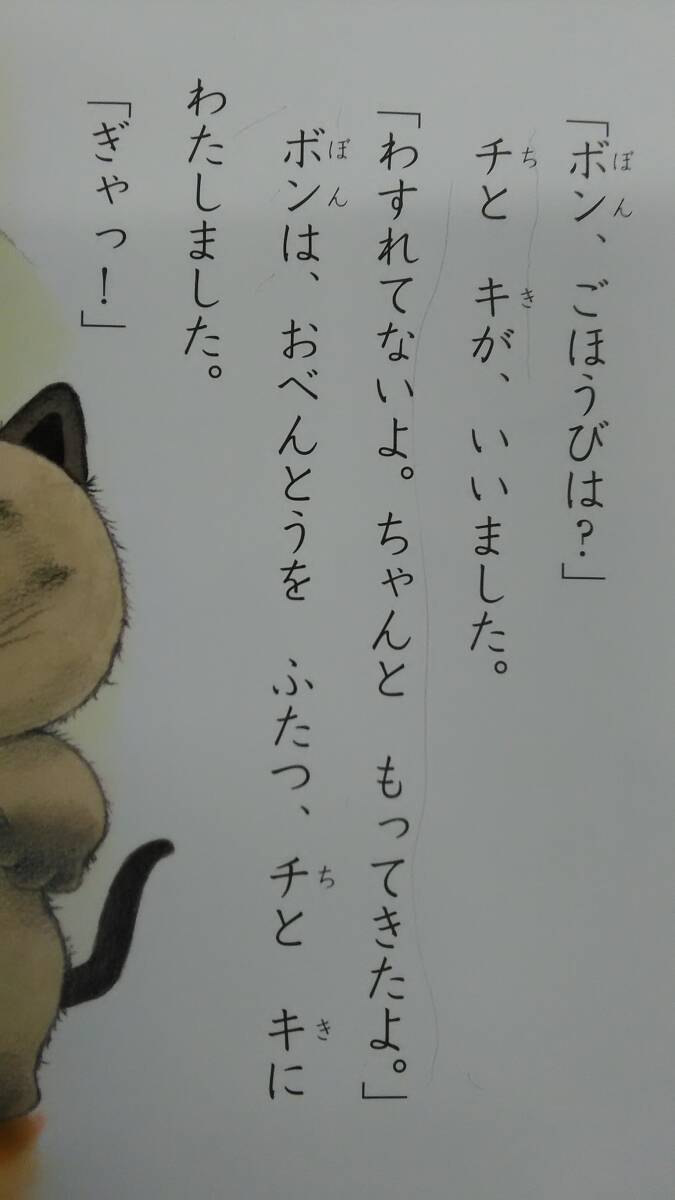 「ボン、ごほうびは？」
チと　キが、いいました。
「わすれてないよ。ちゃんと　もってきたよ。」
ボンは、おべんとうを　ふたつ、チと　キに
わたしました。
「ぎゃっ！」